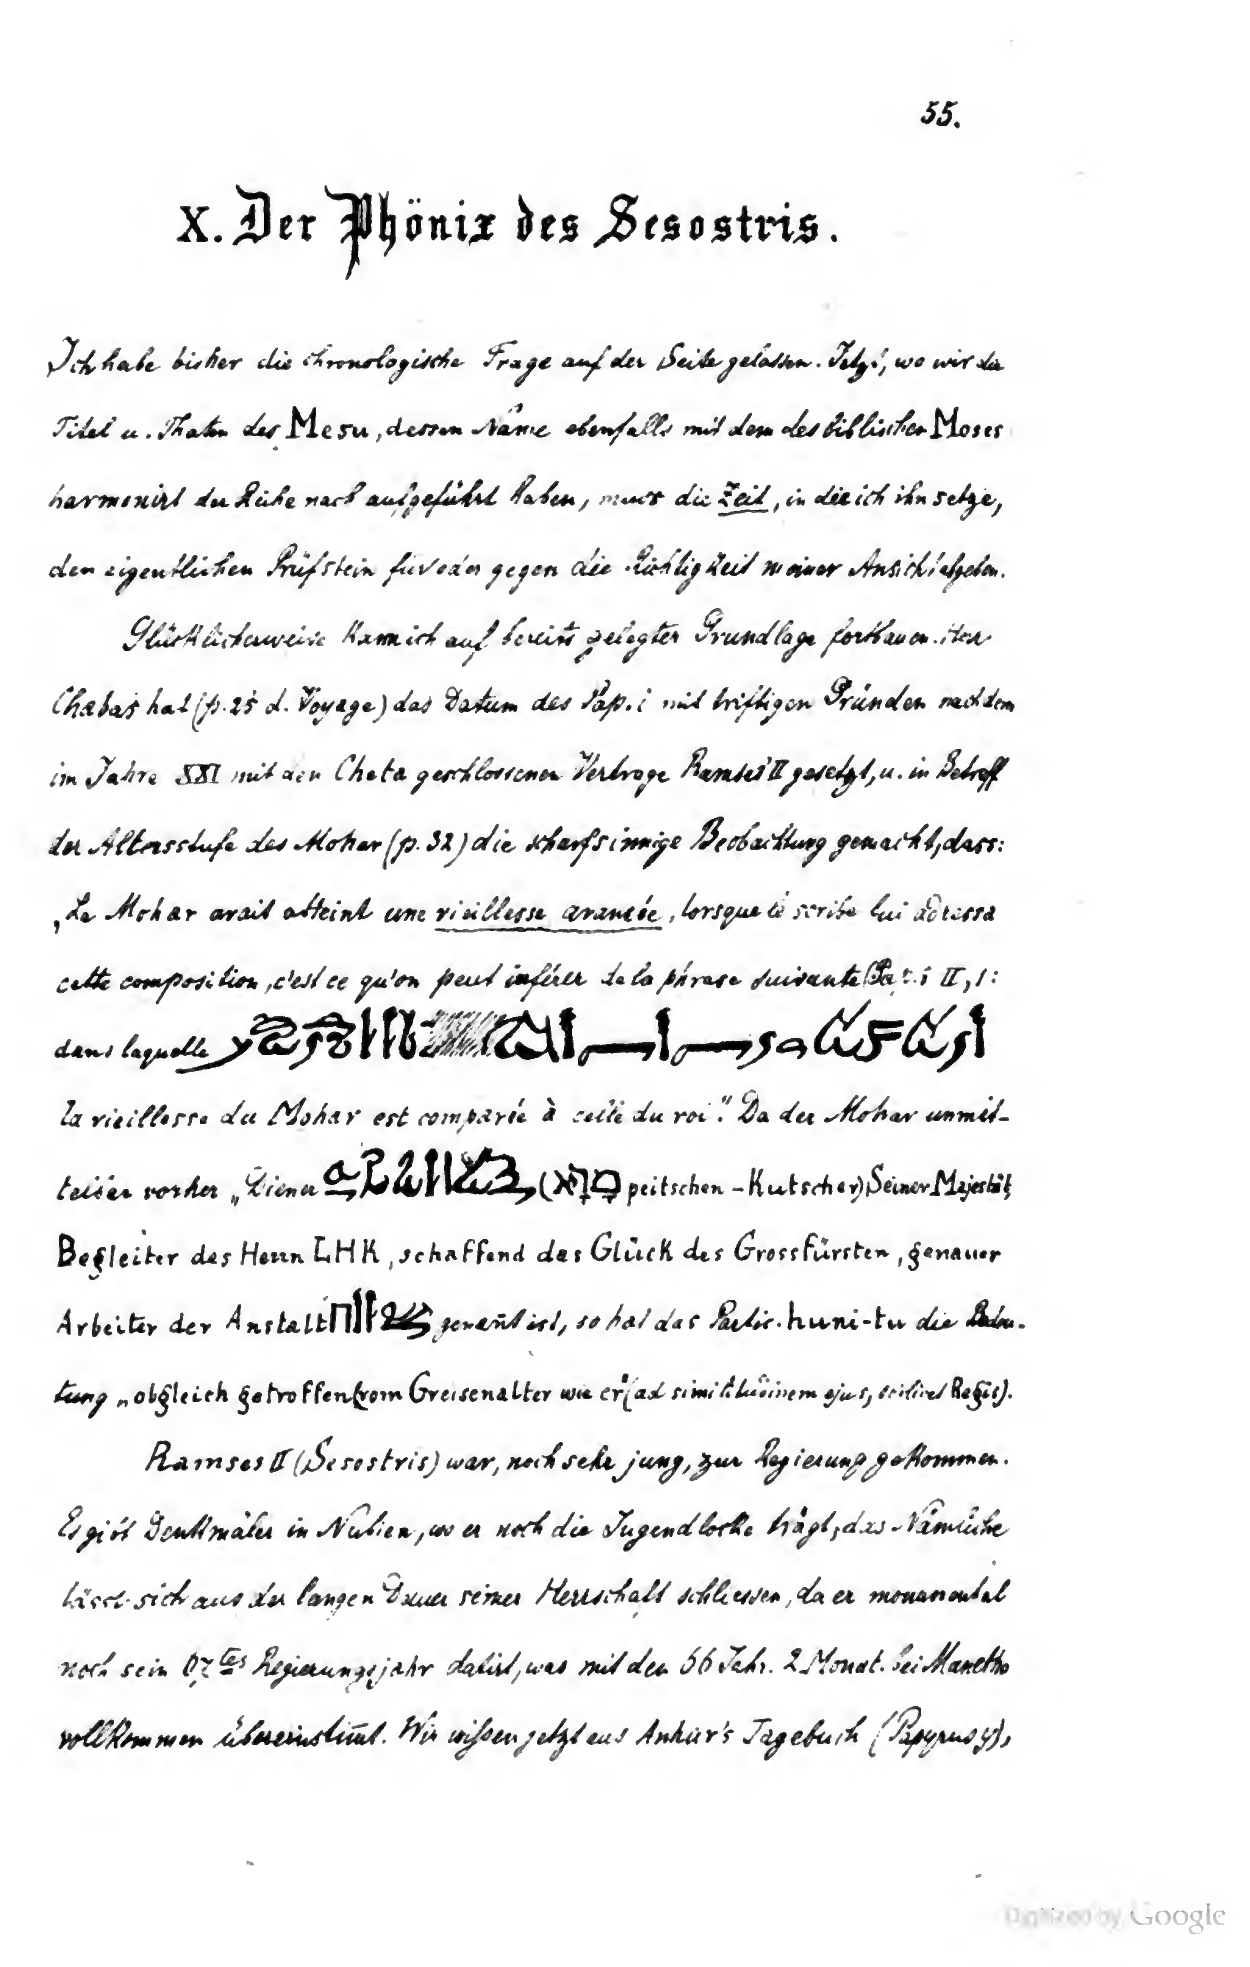 55.
X. Der Phönix des Sesostris.
Ich habe bisher die chronologische Frage auf der Seite gelassen. Jetzt, wo wir die
Titel u. Thaten des Mesu, dessen Name ebenfalls mit dem des biblischen Moses
harmonirt der Reihe nach aufgeführt haben, muss die Zeit, in die ich ihn setze,
den eigentlichen Prüfstein für oder gegen die Richtigkeit meiner Ansicht abgeben.
Glücklicherweise kann ich auf bereits gelegter Grundlage fortbauen. Herr
Chabas hat (p. 25 d. Voyage) das Datum des Pap. i mit triftigen Gründen nach dem
im Jahre XXI mit den Cheta geschlossenen Vertrage Ramses' II gesetzt, u. in Betreff
der Altersstufe des Mohar (p. 32) die scharfsinnige Beobachtung gemacht, dass:
„Le Mohar avait atteint une vieillesse avancée, lorsque le scribe lui adressa
cette composition, c'est ce qu'on peut inférer de la phrase suivante (Pap. i II, 1:
dans laquelle
la vieillesse du Mohar est comparée à celle du roi." Da der Mohar unmit-
telbar vorher „Diener (peitschen-Kutscher) Seiner Majestät,
Begleiter des Herrn LHK, schaffend das Glück des Grossfürsten, genauer
Arbeiter der Anstalt genañt ist, so hat das Partic. huni-tu die Bedeu-
tung „obgleich getroffen vom Greisenalter wie er" (ad similitudinem ejus, scilicet Regis).
Ramses II (Sesostris) war, noch sehr jung, zur Regierung gekommen.
Es gibt Denkmäler in Nubien, wo er noch die Jugendlocke trägt; das Nämliche
lässt sich aus der langen Dauer seiner Herrschaft schliessen, da er monumental
noch sein 67tes Regierungsjahr datirt, was mit den 66 Jahr. 2 Monat. bei Manetho
vollkommen übereinstim̄t. Wir wissen jetzt aus Anhur's Tagebuch (Papyrus y),
Digitized by Google